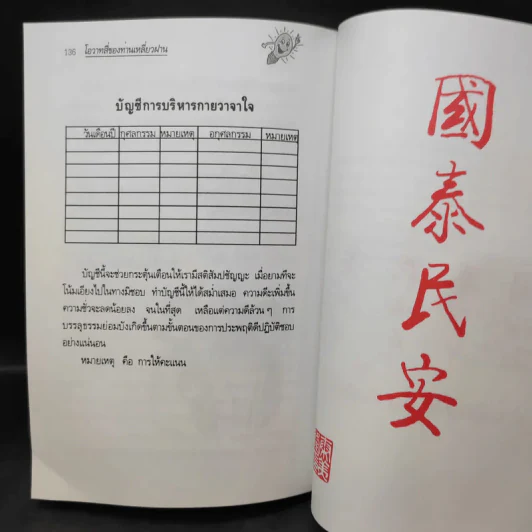 136 โอวาทสี่ของท่านเหลี่ยวฝาน
บัญชีการบริหารกายวาจาใจ
วันเดือนปี กุศลกรรม หมายเหตุ อกุศลกรรม หมายเหตุ
บัญชีนี้จะช่วยกระตุ้นเตือนให้เรามีสติสัมปชัญญะ เมื่อยามที่จะ
โน้มเอียงไปในทางมิชอบ ทำบัญชีนี้ให้ได้สม่ำเสมอ ความดีจะเพิ่มขึ้น
ความชั่วจะลดน้อยลง จนในที่สุด เหลือแต่ความดีล้วนๆ การ
บรรลุธรรมย่อมบังเกิดขึ้นตามขั้นตอนของการประพฤติดีปฏิบัติชอบ
อย่างแน่นอน
หมายเหตุ คือ การให้คะแนน
國泰民安